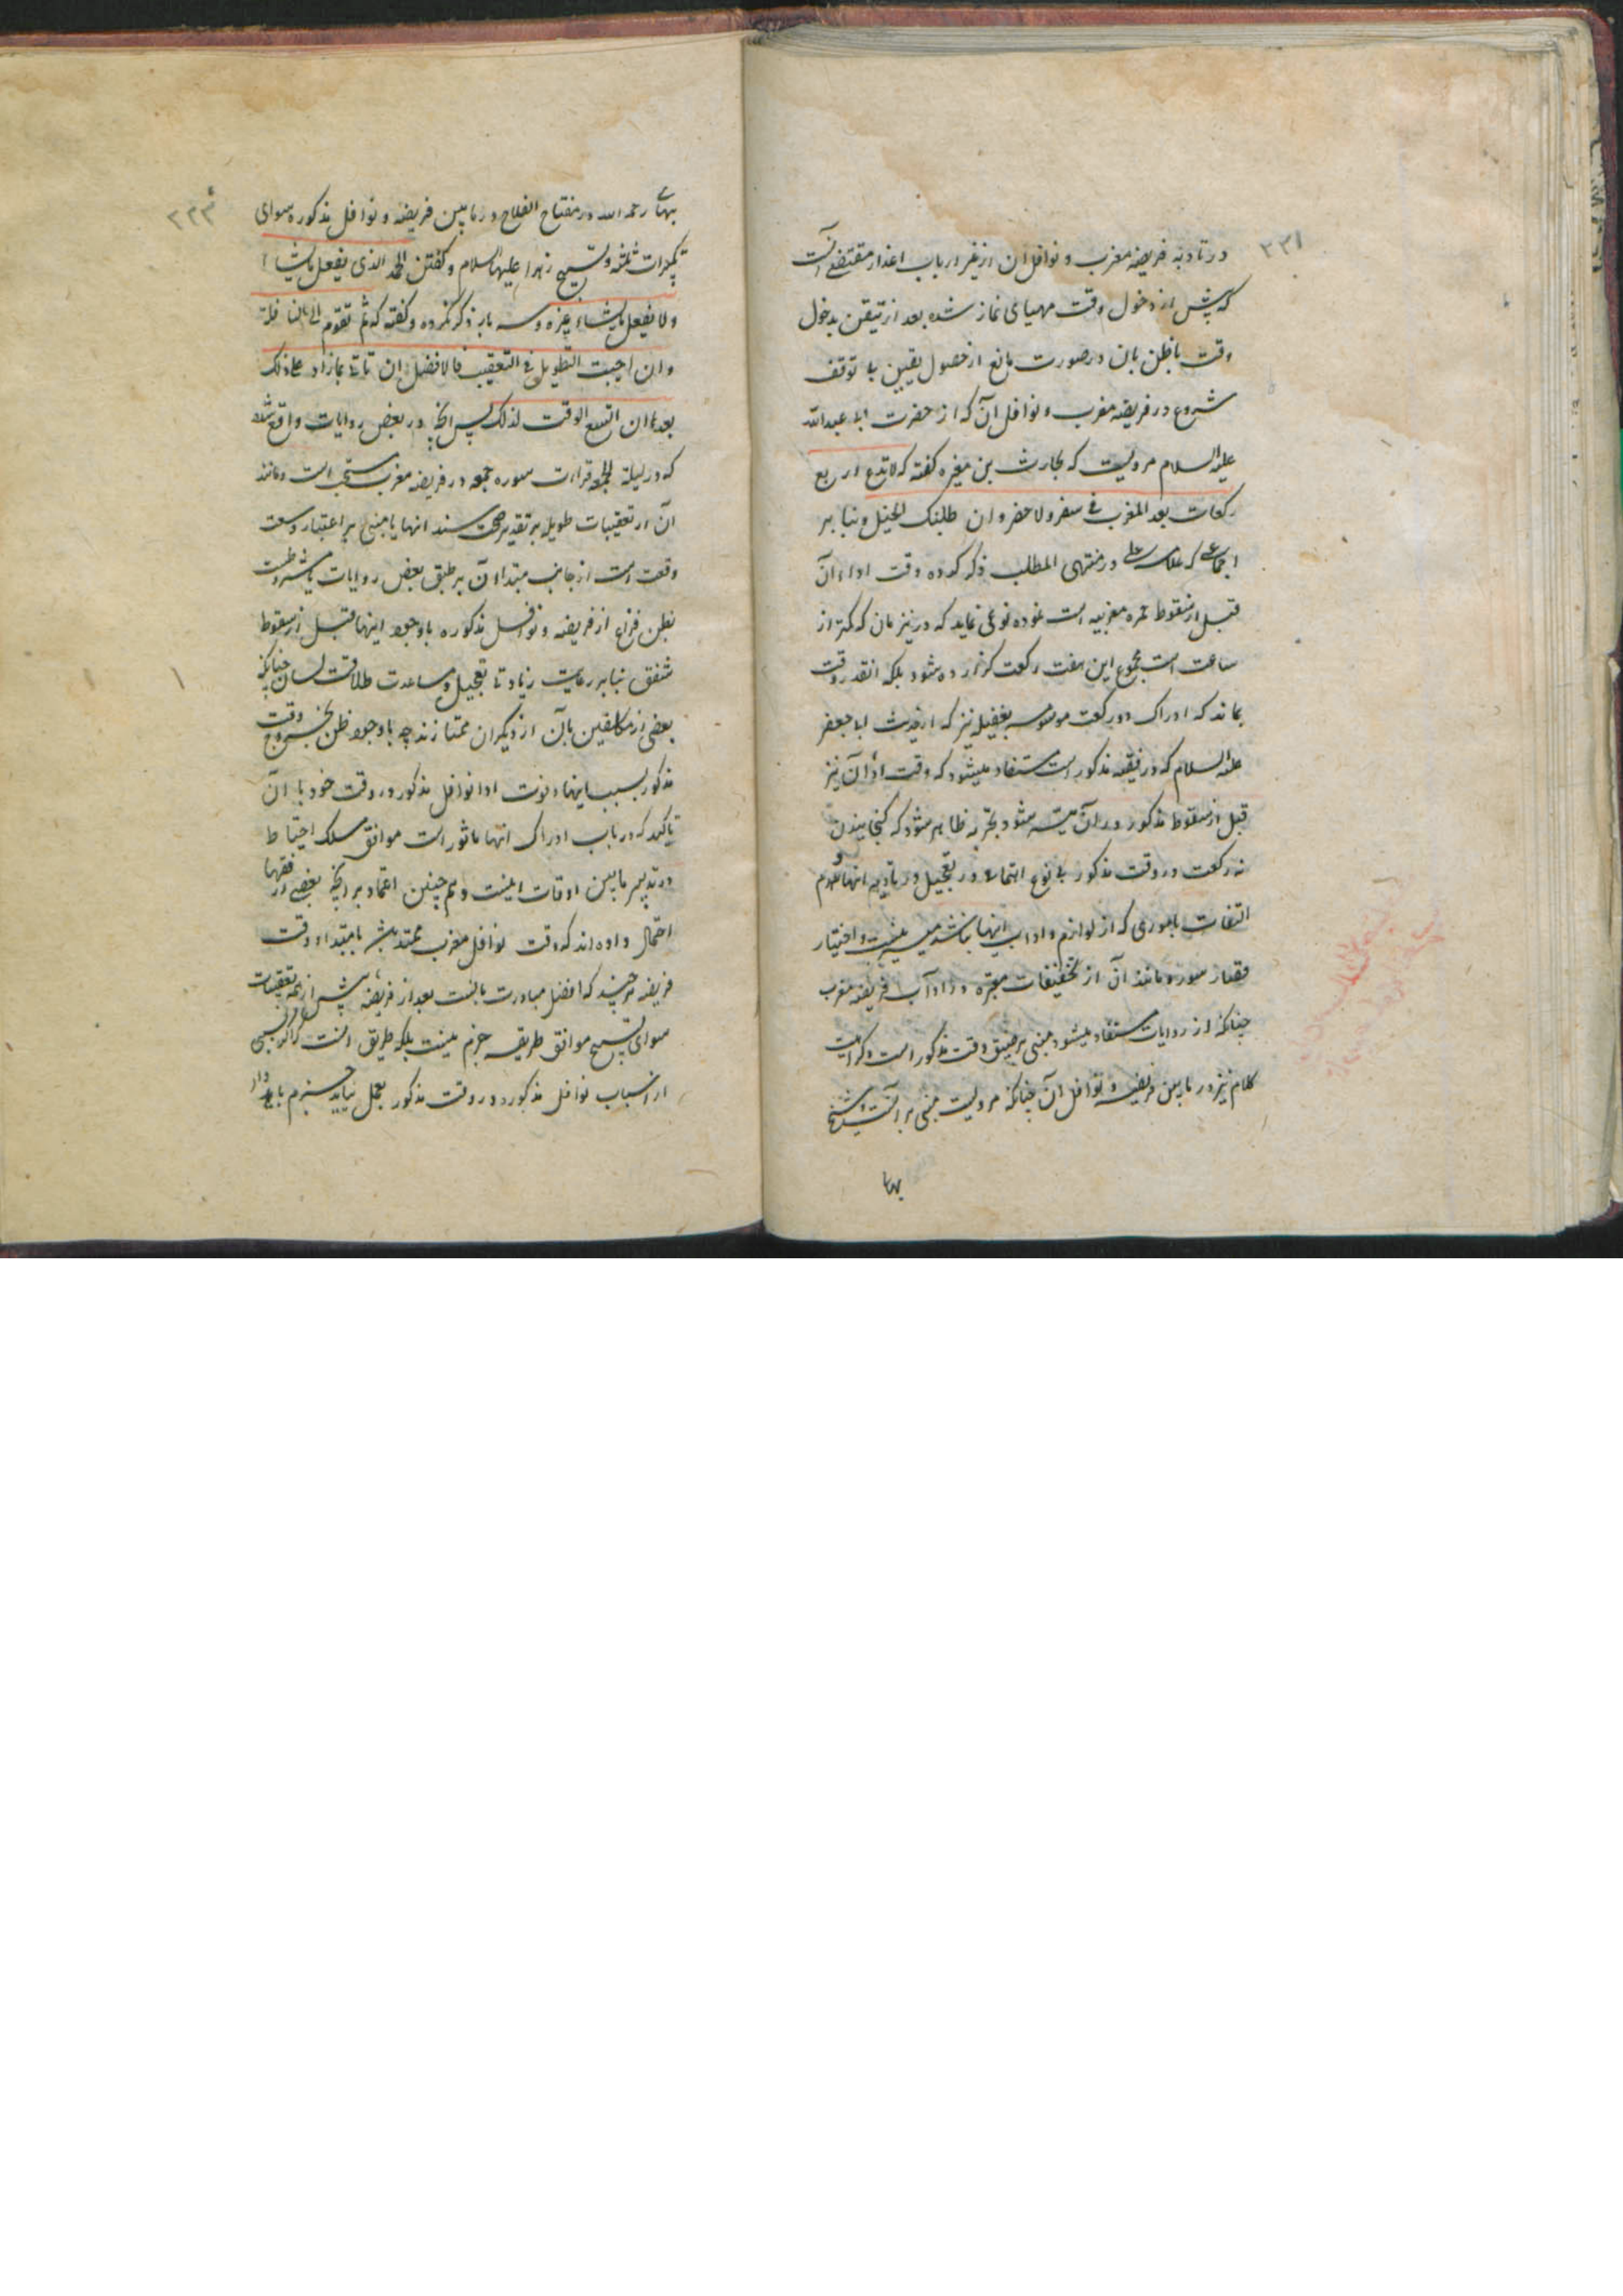 ۲۳۱
در تادیه فریضه مغرب و نوافل آن از غیر ارباب اعذار مقتضی آنست
که پیش از دخول وقت مهیای نماز شده بعد از تیقن بدخول
وقت یا ظن بان در صورت مانع از حصول یقین بی توقف
شروع در فریضه مغرب و نوافل آن که از حضرت ابی عبدالله
علیه السلام مرویست که بحارث بن مغیره گفته که لا تدع اربع
رکعات بعد المغرب فی سفر ولا حضر وان طلبتک الخیل و بنابر
اجماعی که علامه حلی در منتهی المطلب ذکر کرده وقت اداء آن
قبل از سقوط حمره مغربیه است نموده نوعی نماید که درین زمان که کمتر از
ساعت است مجموع این هفت رکعت گزارده شود بلکه انقدر وقت
بماند که ادراک دو رکعت موسومه بغفیله نیز که از حدیث ابی جعفر
علیه السلام که در فقیه مذکور است مستفاد میشود که وقت اداء آن نیز
قبل از سقوط مذکور در آن میسر شود بتجربه ظاهر میشود که گنجانیدن
نه رکعت در وقت مذکور بی نوع اهتمامی در تعجیل در تادیه انها و عدم
التفات باموری که از لوازم و اداب اینها نباشد میسر نیست و اختیار
قصار سور و مانند آن از تخفیفات معتبره در اداب فریضه مغرب
چنانکه از روایات مستفاد میشود مبنی بر ضیق وقت مذکور است و کراهیت
کلام نیز در مابین فریضه و نوافل آن چنانکه مرویست مبنی بر آنست و شیخ
بها
۲۳۳
بهائی رحمه الله در مفتاح الفلاح در مابین فریضه و نوافل مذکوره سوای
تکبیرات ثلثه و تسبیح زهرا علیها السلام و گفتن الحمد لله الذی یفعل ما یشاء
ولا یفعل ما یشاء غیره سه بار ذکر نکرده و گفته که ثم تقوم الی النافلة
وان احببت التطویل فی التعقیب فالافضل ان تاتی بمازاد علی ذلک
بعدها ان اتسع الوقت لذلک پس انچه در بعض روایات واقع شده
که در لیلة الجمعه قراءت سوره جمعه در فریضه مغرب مستحب است و مانند
آن از تعقیبات طویله بر تقدیر صحت سند انها یا مبنی بر اعتبار وسعت
وقت است از جانب مبتداء آن بر طبق بعض روایات یا مشروطست
بظن فراغ از فریضه و نوافل مذکوره باوجود اینها قبل از سقوط
شفق بنابر رعایت زیادتی تعجیل و مساعدت طلاقت لسان چنانکه
بعضی از مکلفین بآن از دیگران ممتازند چه باوجود ظن بخروج وقت
مذکور بسبب اینها و فوت ادا نوافل مذکور در وقت خود با آن
تاکید که در باب ادراک انها ماثور است موافق مسلک احتیاط
در تدبیر مابین اوقات نیست و همچنین اعتماد بر انچه بعضی از فقها
احتمال داده اند که وقت نوافل مغرب ممتد باشد بامتداد وقت
فریضه هر چند که افضل مبادرت بانست بعد از فریضه پیش از همه تعقیبات
سوای تسبیح موافق طریقه حزم نیست بلکه طریق انست که اگر بسببی
از اسباب نوافل مذکوره در وقت مذکور بعمل نیاید جزم